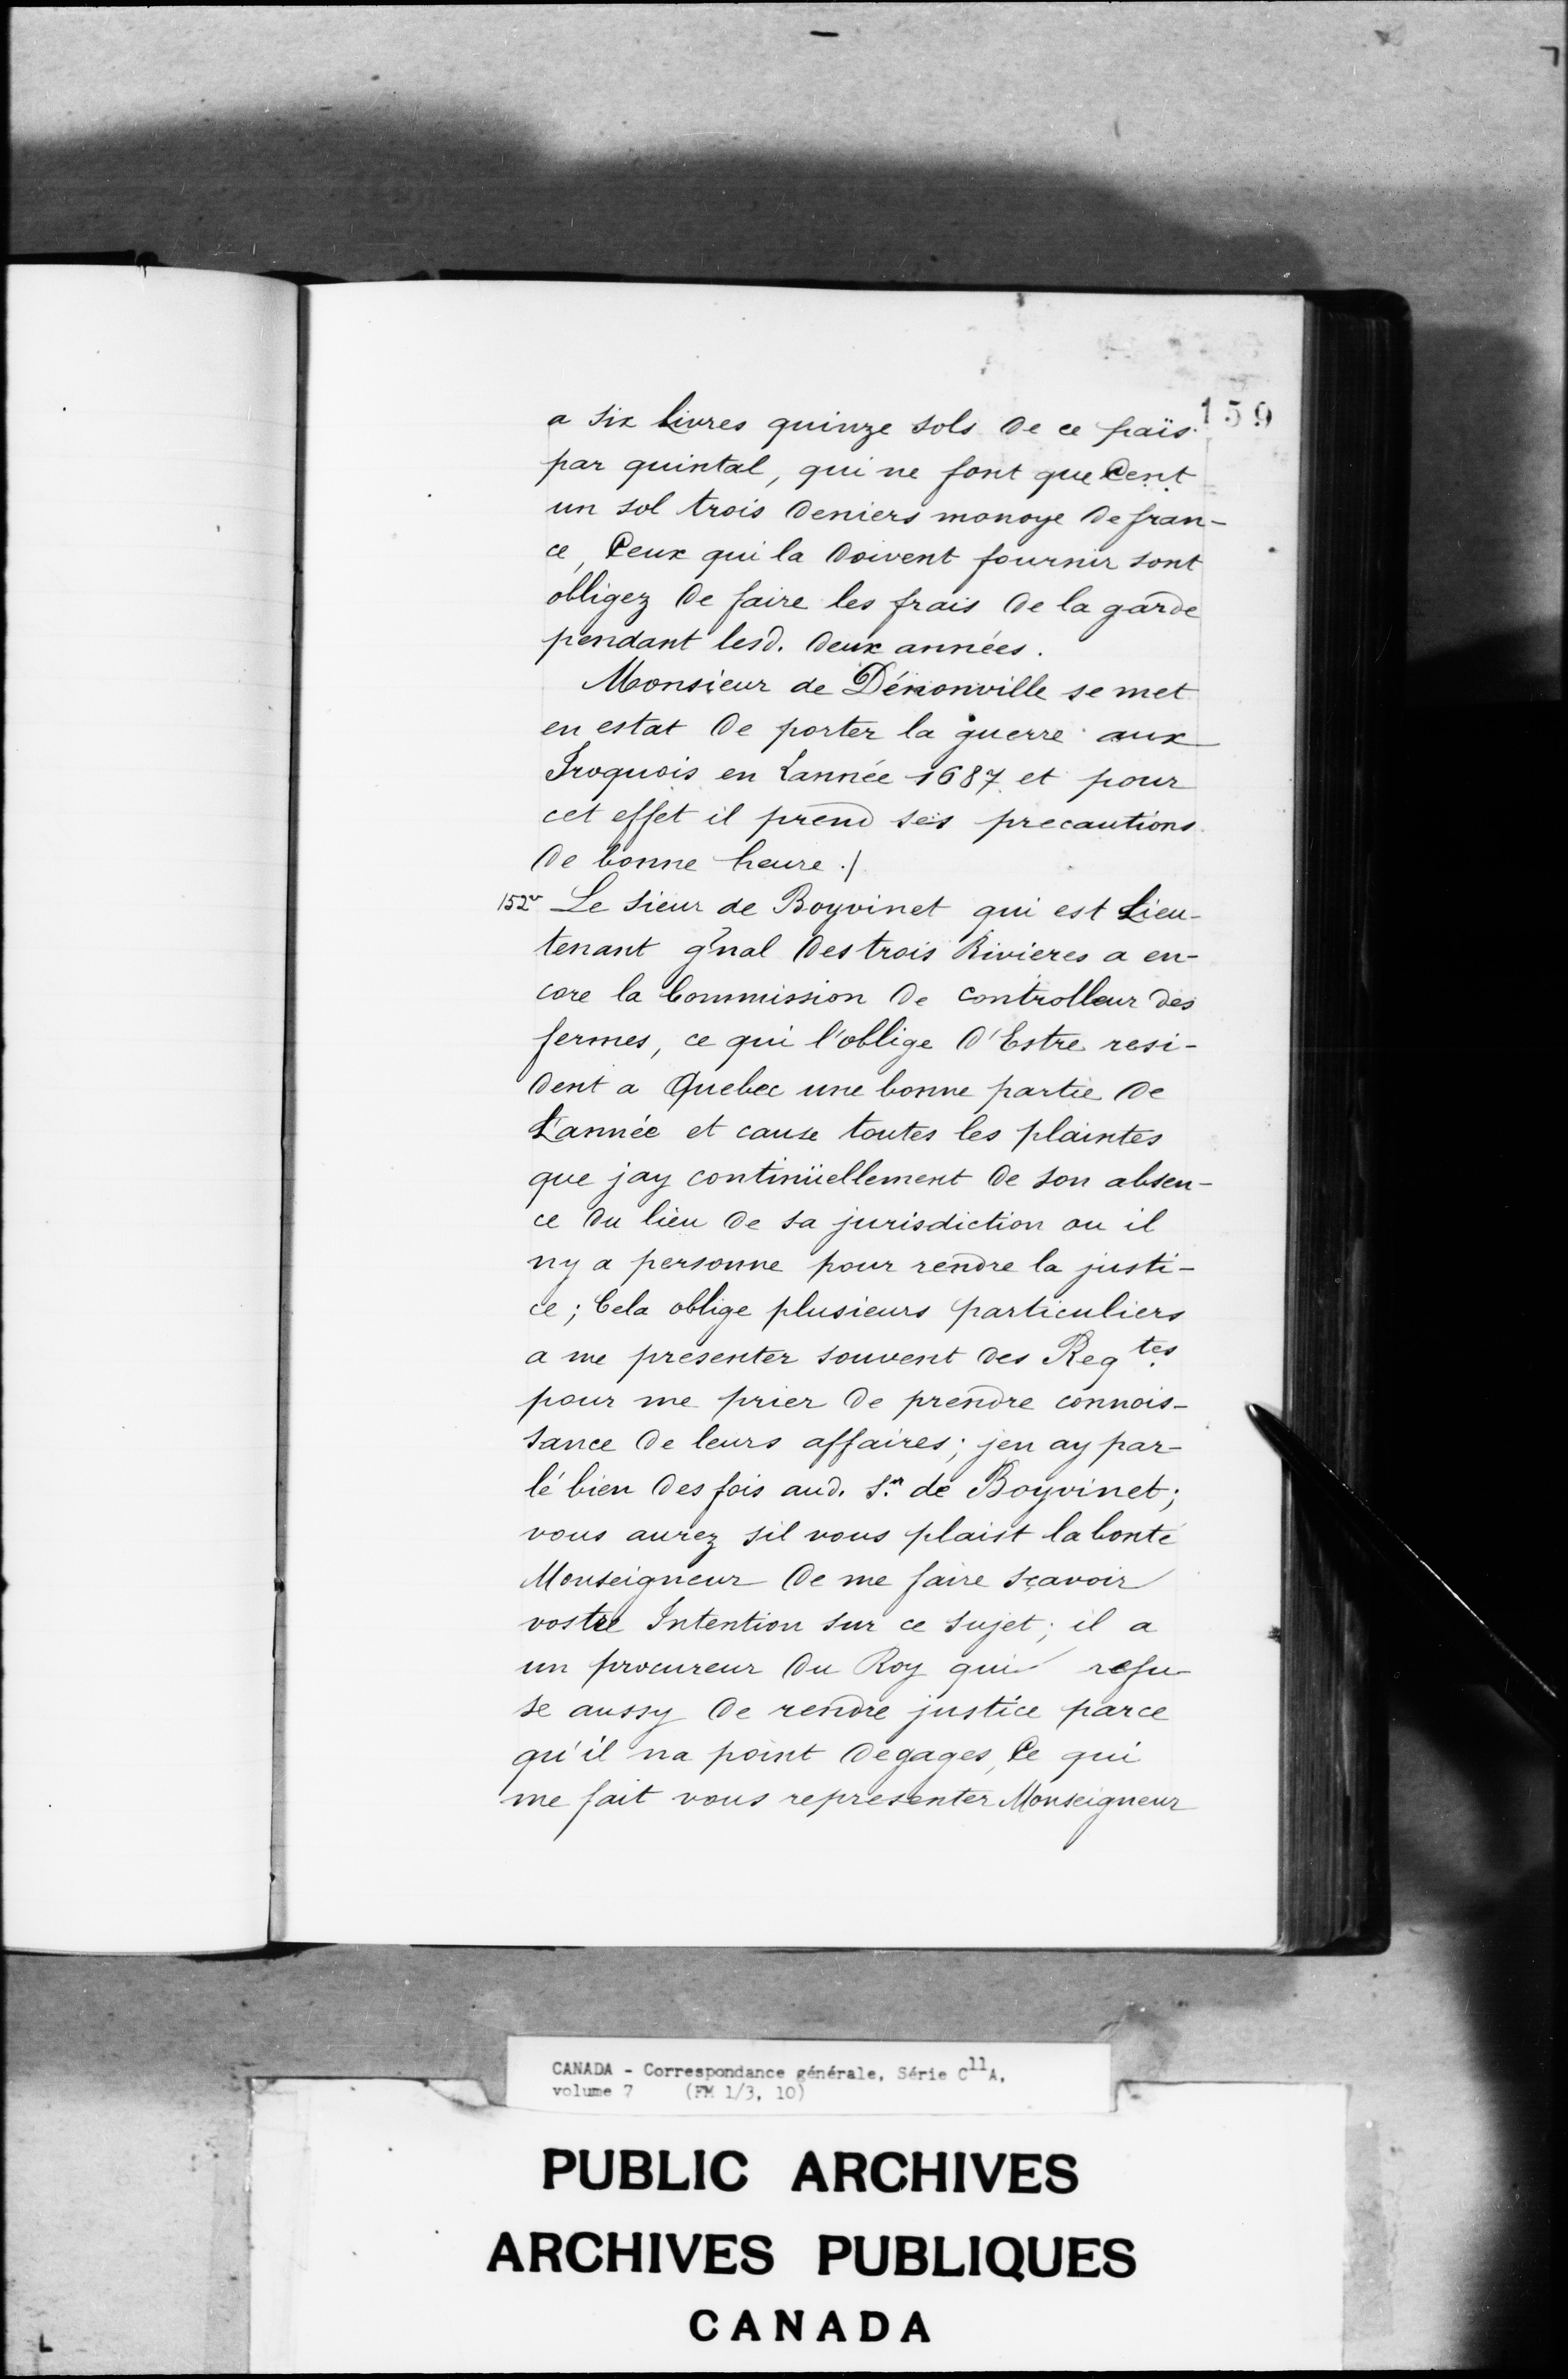 159
a six Livres quinze sols de ce païs
par quintal, qui ne font que Cent
un sol trois deniers monoye de fran-
ce, Ceux qui la doivent fournir sont
obligez de faire les frais de la garde
pendant lesd. deux années.
Monsieur de Dénonville se met
en estat de porter la guerre aux
Iroquois en Lannée 1687 et pour
cet effet il prend ses precautions
de bonne heure ./
152v Le sieur de Boyvinet qui est Lieu-
tenant gñal des trois Rivieres a en-
core la Commission de controlleur des
fermes, ce qui l'oblige d'Estre resi-
dent a Quebec une bonne partie de
L'année et cause toutes les plaintes
que jay continüellement de son absen-
ce du lieu de sa jurisdiction ou il
ny a personne pour rendre la justi-
ce ; Cela oblige plusieurs particuliers
a me presenter souvent des Reqtes.
pour me prier de prendre connois-
sance de leurs affaires ; jen ay par-
lé bien des fois aud. Sr. de Boyvinet ;
vous aurez sil vous plaist la bonté
Monseigneur de me faire sçavoir
vostre Intention sur ce sujet ; il a
un procureur du Roy qui refu-
se aussy de rendre justice parce
qu'il na point de gages, Ce qui
me fait vous representer Monseigneur
CANADA - Correspondance générale, Série C11A,
volume 7 (FM 1/3, 10)
PUBLIC ARCHIVES
ARCHIVES PUBLIQUES
CANADA
L